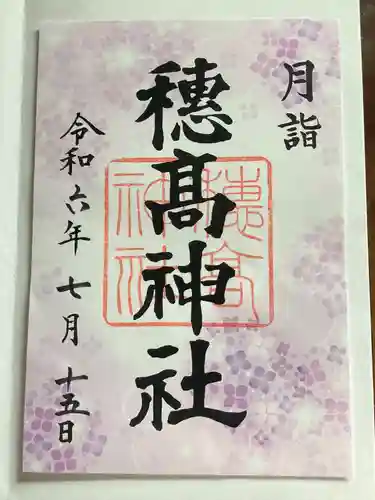 月詣
穂髙神社
穂髙神社
令和六年七月十五日